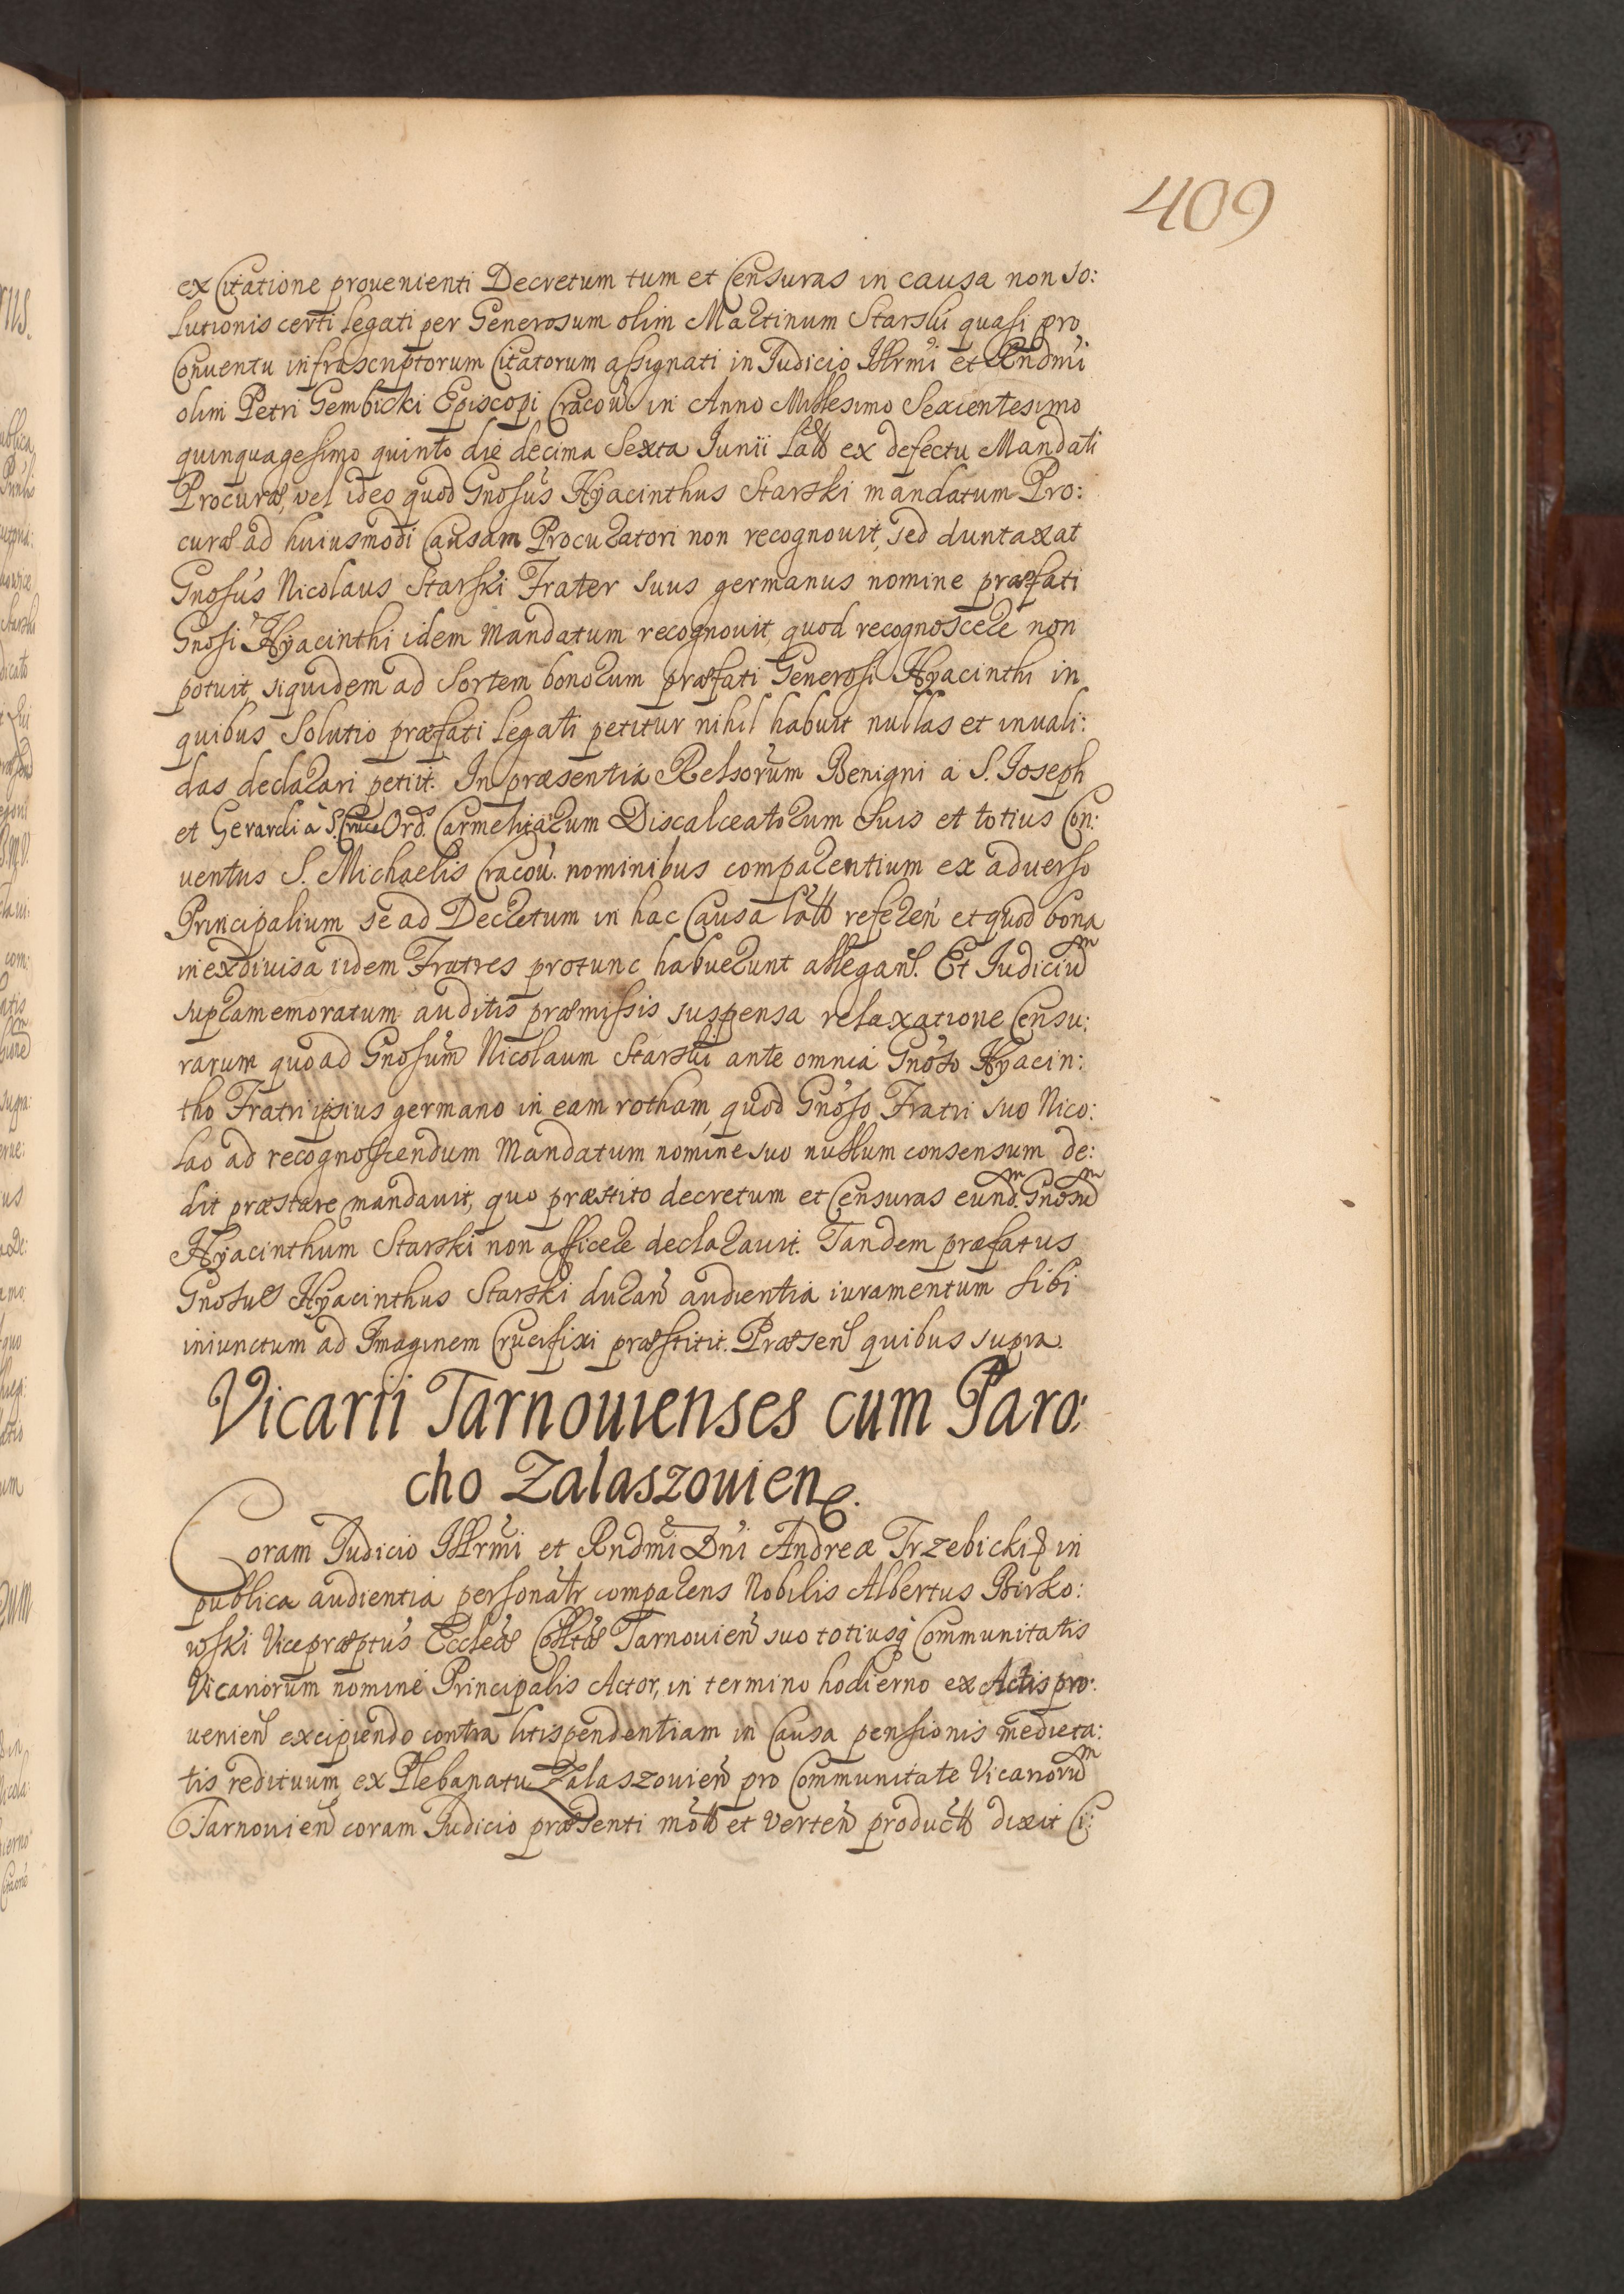 409
ex Citatione prouenienti Decretum tum et Censuras in causa non so:
lutionis certi legati per Generosum olim Martinum Starski quasi pro
Conuentu infrascriptorum Citatorum assignati in Judicio Illrmi et Rndmi
olim Petri Gembicki Episcopi Cracou in Anno Millesimo Sexcentesimo
quinquagesimo quinto die decima Sexta Junii latt ex defectu Mandati
Procuræ, vel ideo quod Gnosus Hyacinthus Starski mandatum Pro:
curæ ad huiusmodi Causam Procuratori non recognouit, sed duntaxat
Gnosus Nicolaus Starski Frater suus germanus nomine præfati
Gnosi Hyacinthi idem Mandatum recognouit, quod recognoscere non
potuit, siquidem ad Sortem bonorum præfati Generosi Hyacinthi in
quibus Solutio præfati legati petitur nihil habuit nullas et inuali:
das declarari petiit. In præsentia Relsorum Benigni à S. Joseph
et Gerardi à S. Cruce Ord. Carmelitarum Discalceatorum Suis et totius Con:
uentus S. Michaelis Cracou. nominibus comparentium ex aduerso
Principalium se ad Decretum in hac Causa latt referen et quod bona
inexdiuisa iidem Fratres protunc habuerunt allegan. Et Judicium
supramemoratum auditis præmissis suspensa relaxatione Censu:
rarum quoad Gnosum Nicolaum Starski ante omnia Gnoso Hyacin:
tho Fratri ipsius germano in eam rotham, quod Gnoso Fratri suo Nico:
lao ad recognoscendum Mandatum nomine suo nullum consensum de:
dit præstare mandauit, quo præstito decretum et Censuras eundm Gnosum
Hyacinthum Starski non afficere declarauit. Tandem præfatus
Gnosus Hyacinthus Starski duran audientia iuramentum sibi
iniunctum ad Imaginem Crucifixi præstitit. Præsen quibus supra.
Vicarii Tarnouienses cum Paro:
cho Zalaszouien.
Coram Judicio Illrmi et Rndmi Dni Andreæ Trzebicki in
publica audientia personatr comparens Nobilis Albertus Birko:
wski Vicepræptus Ecclæ Colltæ Tarnouien suo totiusq Communitatis
Vicariorum nomine Principalis Actor, in termino hodierno ex Actis pro:
uenien excipiendo contra litispendentiam in Causa pensionis medieta:
tis redituum ex Plebanatu Zalaszouien pro Communitate Vicariorum
Tarnouien coram Judicio præsenti mott et verten productt dixit Ci: